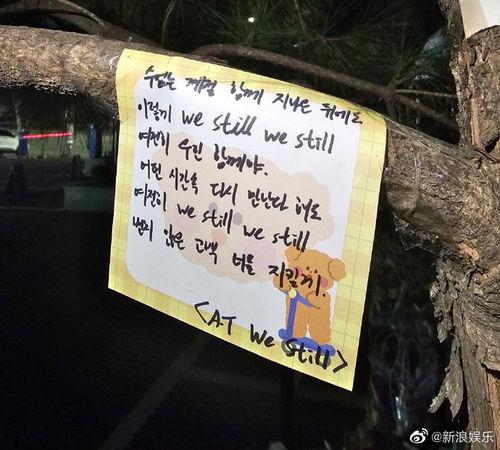 수많은 계절 함께 지나온 뒤에도
이렇게 we still we still
여전히 우린 함께야.
어떤 시간속 다시 만난다 해도
여전히 we still we still
변치 않은 고백 너를 지킬게.
<AT We Still>
@新浪娱乐